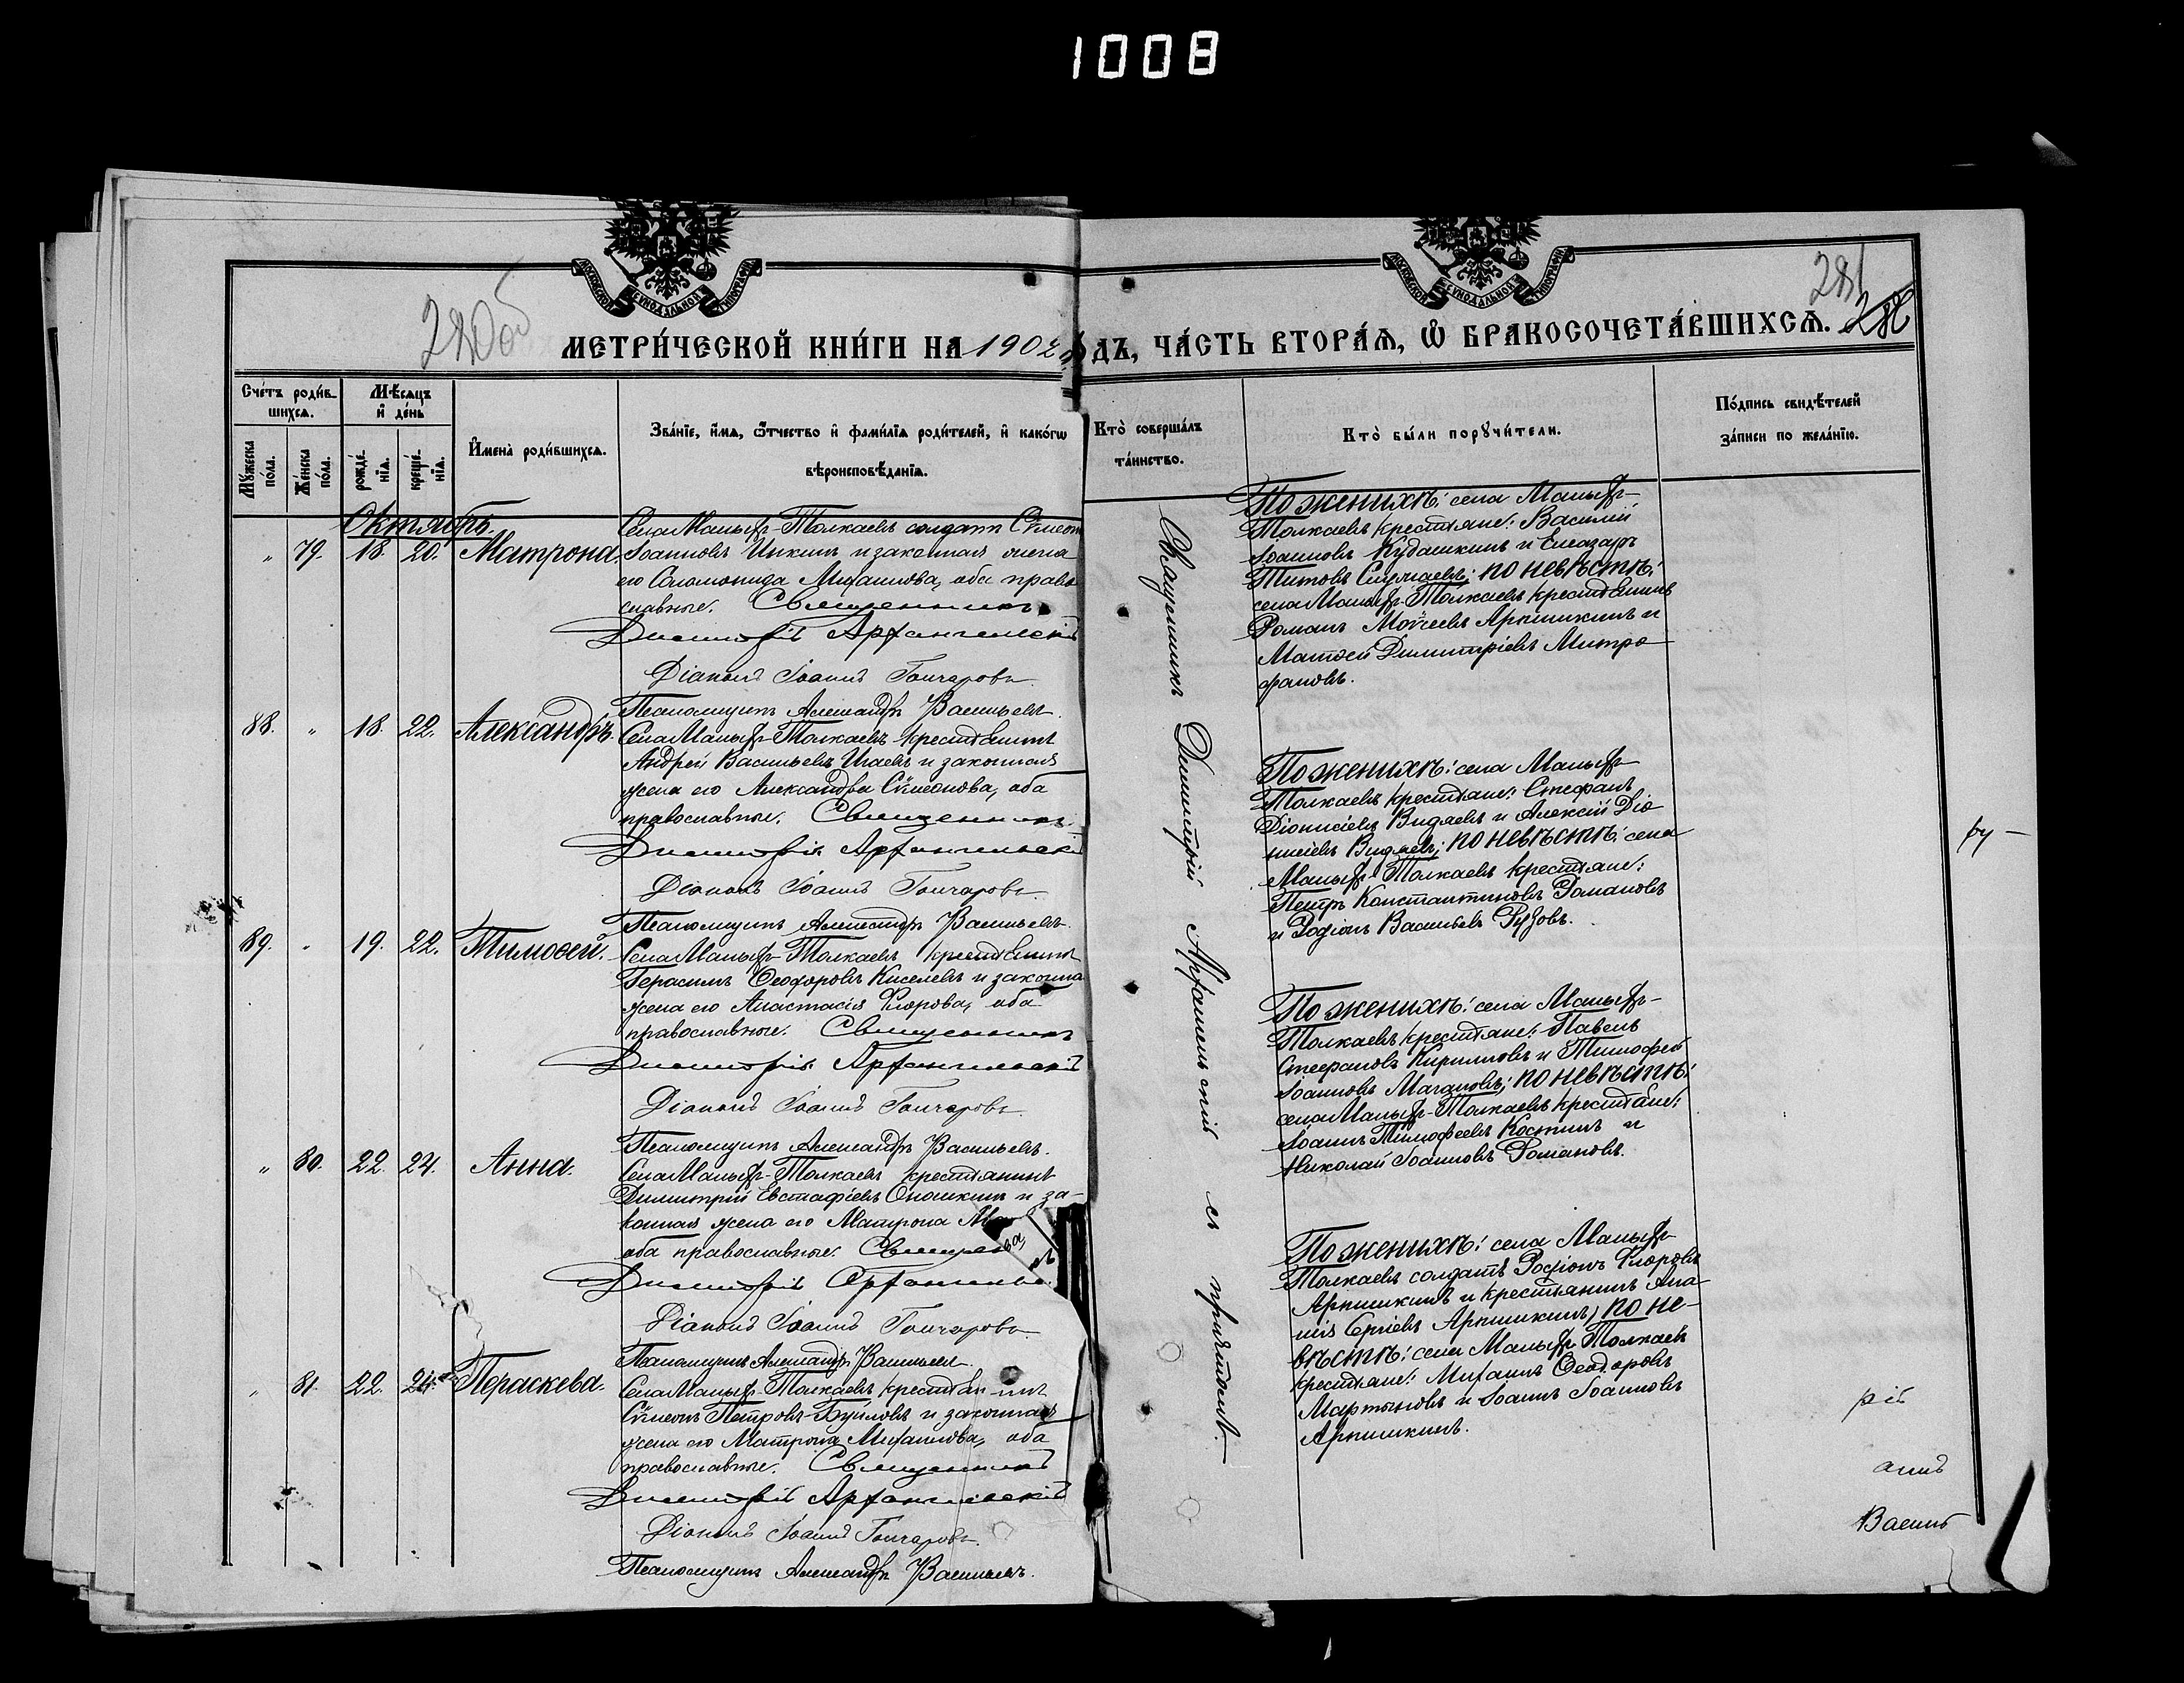 1008
280об
МЕТРИ́ЧЕСКОЙ КНИ́ГИ НА 1902
Сче́тъ роди́в-
шихсѧ.
Мѣ́сѧцъ
и҆ де́нь
Мꙋ́жеска
по́ла.
Же́нска
по́ла.
рожде́-
нїѧ.
креще́-
нїѧ.
И҆мена̀ роди́вшихсѧ.
Зва́нїе, и҆́мѧ, ѻ҆́тчество и҆ фами́лїѧ роди́телей, и҆ како́гѡ
вѣроисповѣ́данїѧ.
Октябрь
„ 79. 18. 20. Матрона.
Села Малыхъ-Толкаевъ солдатъ Сѵмеон
Іоанновъ Инкинъ и законная жена
его Соломонида Михаилова, оба право
славные. Священникъ
Димитрій Архангельскій
Діаконъ Іоаннъ Гончаровъ
Псаломщикъ Александръ Васильевъ
88. „ 18. 22. Александръ.
Села Малыхъ-Толкаевъ крестьянинъ
Андрей Васильевъ Игаевъ и законная
жена его Александра Сѵмеонова, оба
православные. Священникъ
Димитрій Архангельскі
Діаконъ Іоаннъ Гончаровъ
Псаломщикъ Александръ Васильевъ
89. „ 19. 22. Тимоѳей.
Села Малыхъ-Толкаевъ крестьянинъ
Герасимъ Ѳеодоровъ Киселевъ и законна
жена его Анастасія Флорова, оба
православные. Священникъ
Димитрій Архангельскій
Діаконъ Іоаннъ Гончаровъ
Псаломщикъ Александръ Васильевъ.
„ 80. 22. 24. Анна.
Села Малыхъ-Толкаевъ крестьянинъ
Димитрій Евстафіевъ Оношкинъ и за-
конная жена его Матрона
оба православные. Священ
Димитрій Архангель
Діаконъ Іоаннъ Гончаровъ
Псаломщикъ Александръ Васильевъ
„ 81. 22. 24. Параскева.
Села Малыхъ-Толкаевъ крестьянинъ
Сѵмеонъ Петровъ Буйловъ и законная
жена его Матрона Михаилова, оба
православные. Священникъ
Димитрій Архангельскій
Діаконъ Іоаннъ Гончаровъ
Псаломщикъ Александръ Васильевъ.
281
ДЪ, ЧА́СТЬ ВТОРА́Ѧ, Ѽ БРАКОСОЧЕТА́ВШИХСѦ.
Кто̀ соверша́лъ
та́инство.
Кто̀ бы́ли порꙋчи́тели.
По́дпись свидѣ́телей
за́писи по жела́нїю.
Священникъ Димитрій Архангельскій съ причтомъ.
По женихѣ: села Малыхъ-
Толкаевъ крестьяне: Василій
Іоанновъ Кудашкинъ и Елеазаръ
Титовъ; по невѣстѣ:
села Малыхъ-Толкаевъ крестьянинъ
Романъ Моѵсеевъ Аркишкинъ и
Матѳей Димитріевъ Митро
фановъ.
По женихѣ: села Малыхъ-
Толкаевъ крестьяне: Стефанъ
Діонисіевъ Видяевъ и Алексій Діо
нисіевъ Видяевъ; по невѣстѣ: села
Малыхъ-Толкаевъ крестьяне:
Петръ Константиновъ Романовъ
и Родіонъ Васильевъ Рузовъ.
По женихѣ: села Малыхъ-
Толкаевъ крестьяне: Павелъ
Стефановъ Кирилловъ и Тимофей
Іоанновъ; по невѣстѣ:
села Малыхъ-Толкаевъ крестьяне:
Іоаннъ Тимофеевъ Костинъ и
Николай Іоанновъ Романовъ.
По женихѣ: села Малыхъ-
Толкаевъ солдатъ Родіонъ Флоровъ
Аркишкинъ и крестьянинъ Ана-
нія Сергіевъ Аркишкинъ; по не-
вѣстѣ: села Малыхъ Толкаевъ
крестьяне: Михаилъ Ѳеодоровъ
Мартыновъ и Іоаннъ Іоанновъ
Аркишкинъ.
ру-
рій
аннъ
Василь